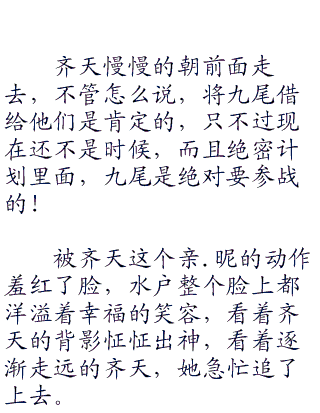 齐天慢慢的朝前面走
去，不管怎么说，将九尾借
给他们是肯定的，只不过现
在还不是时候，而且绝密计
划里面，九尾是绝对要参战
的！
被齐天这个亲.昵的动作
羞红了脸，水户整个脸上都
洋溢着幸福的笑容，看着齐
天的背影怔怔出神，看着逐
渐走远的齐天，她急忙追了
上去。